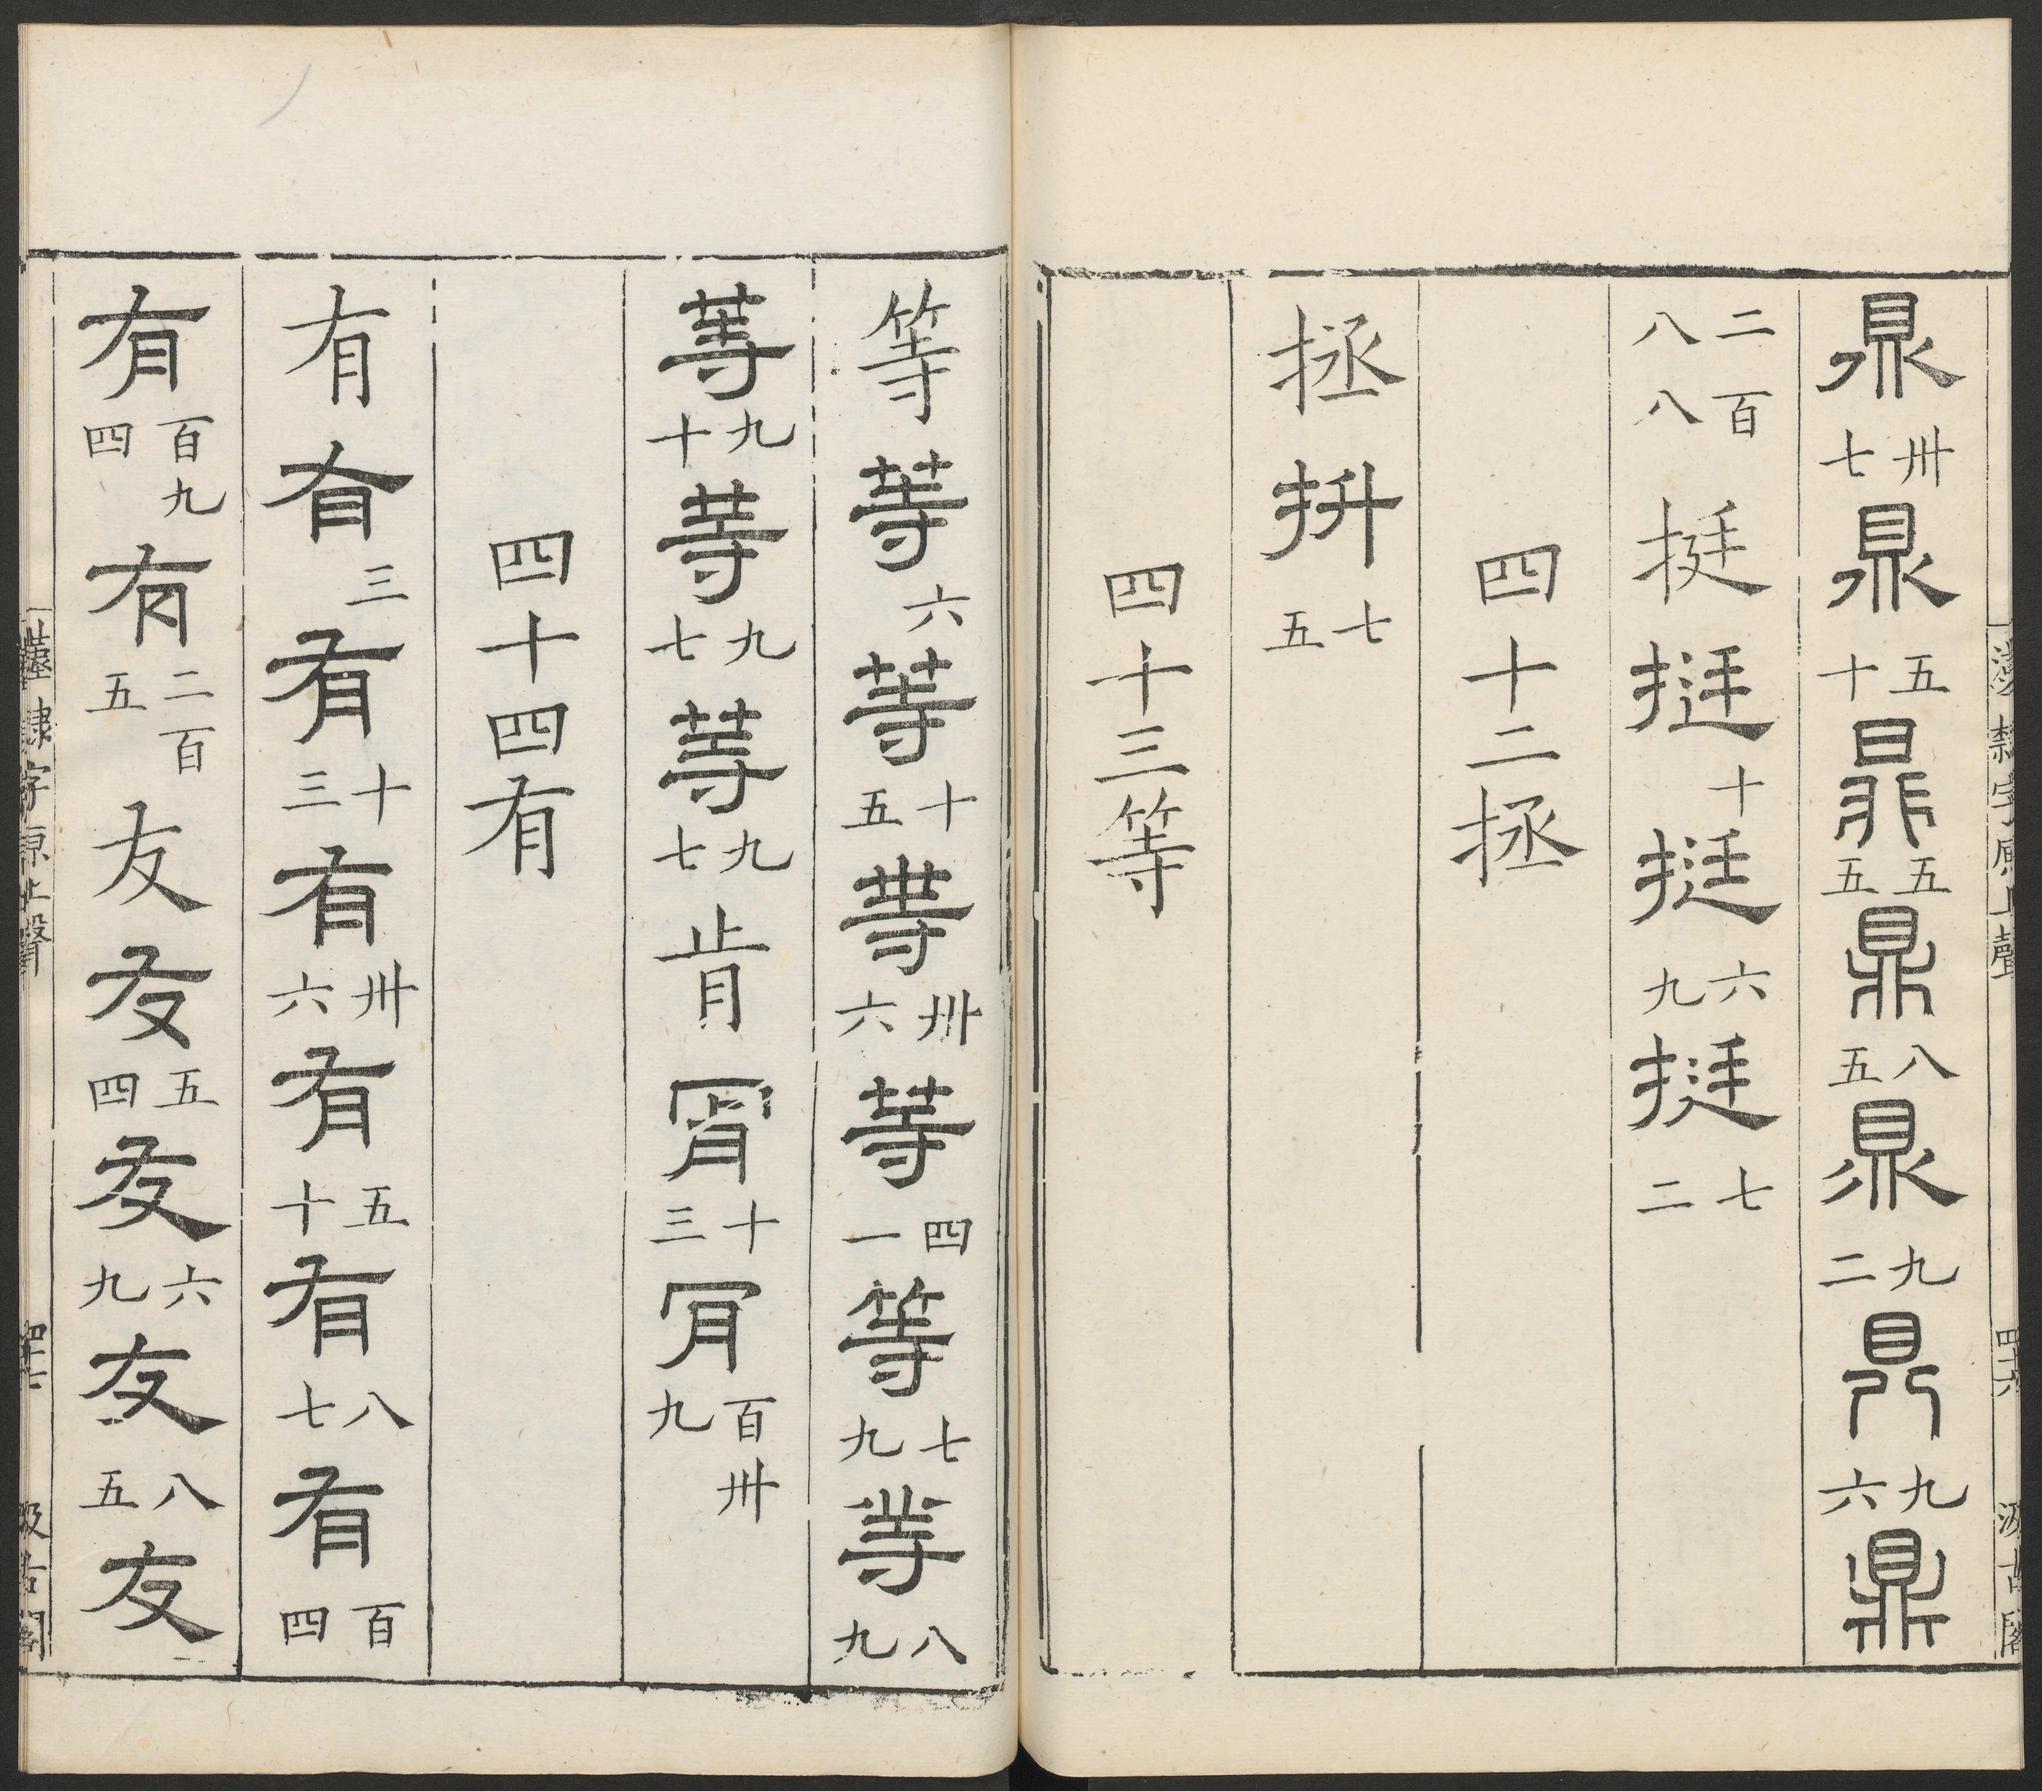 鼎卅七鼎五十鼎五五鼎八五鼎九二鼎九六鼎
二百八八挺挺十挺六九挺七二
四十二拯
拯抍七五
四十三等
漢隸字原上聲 四十六 汲古閣
等等六等十五等卅六等四一等七九等八九
等九十等九七等九七肯肎十三肎百卅九
四十四有
有有三有十三有卅六有五十有八七有百四
有百九四有二百五友友五四友六九友八五友
漢隸字原上聲 四十七 汲古閣